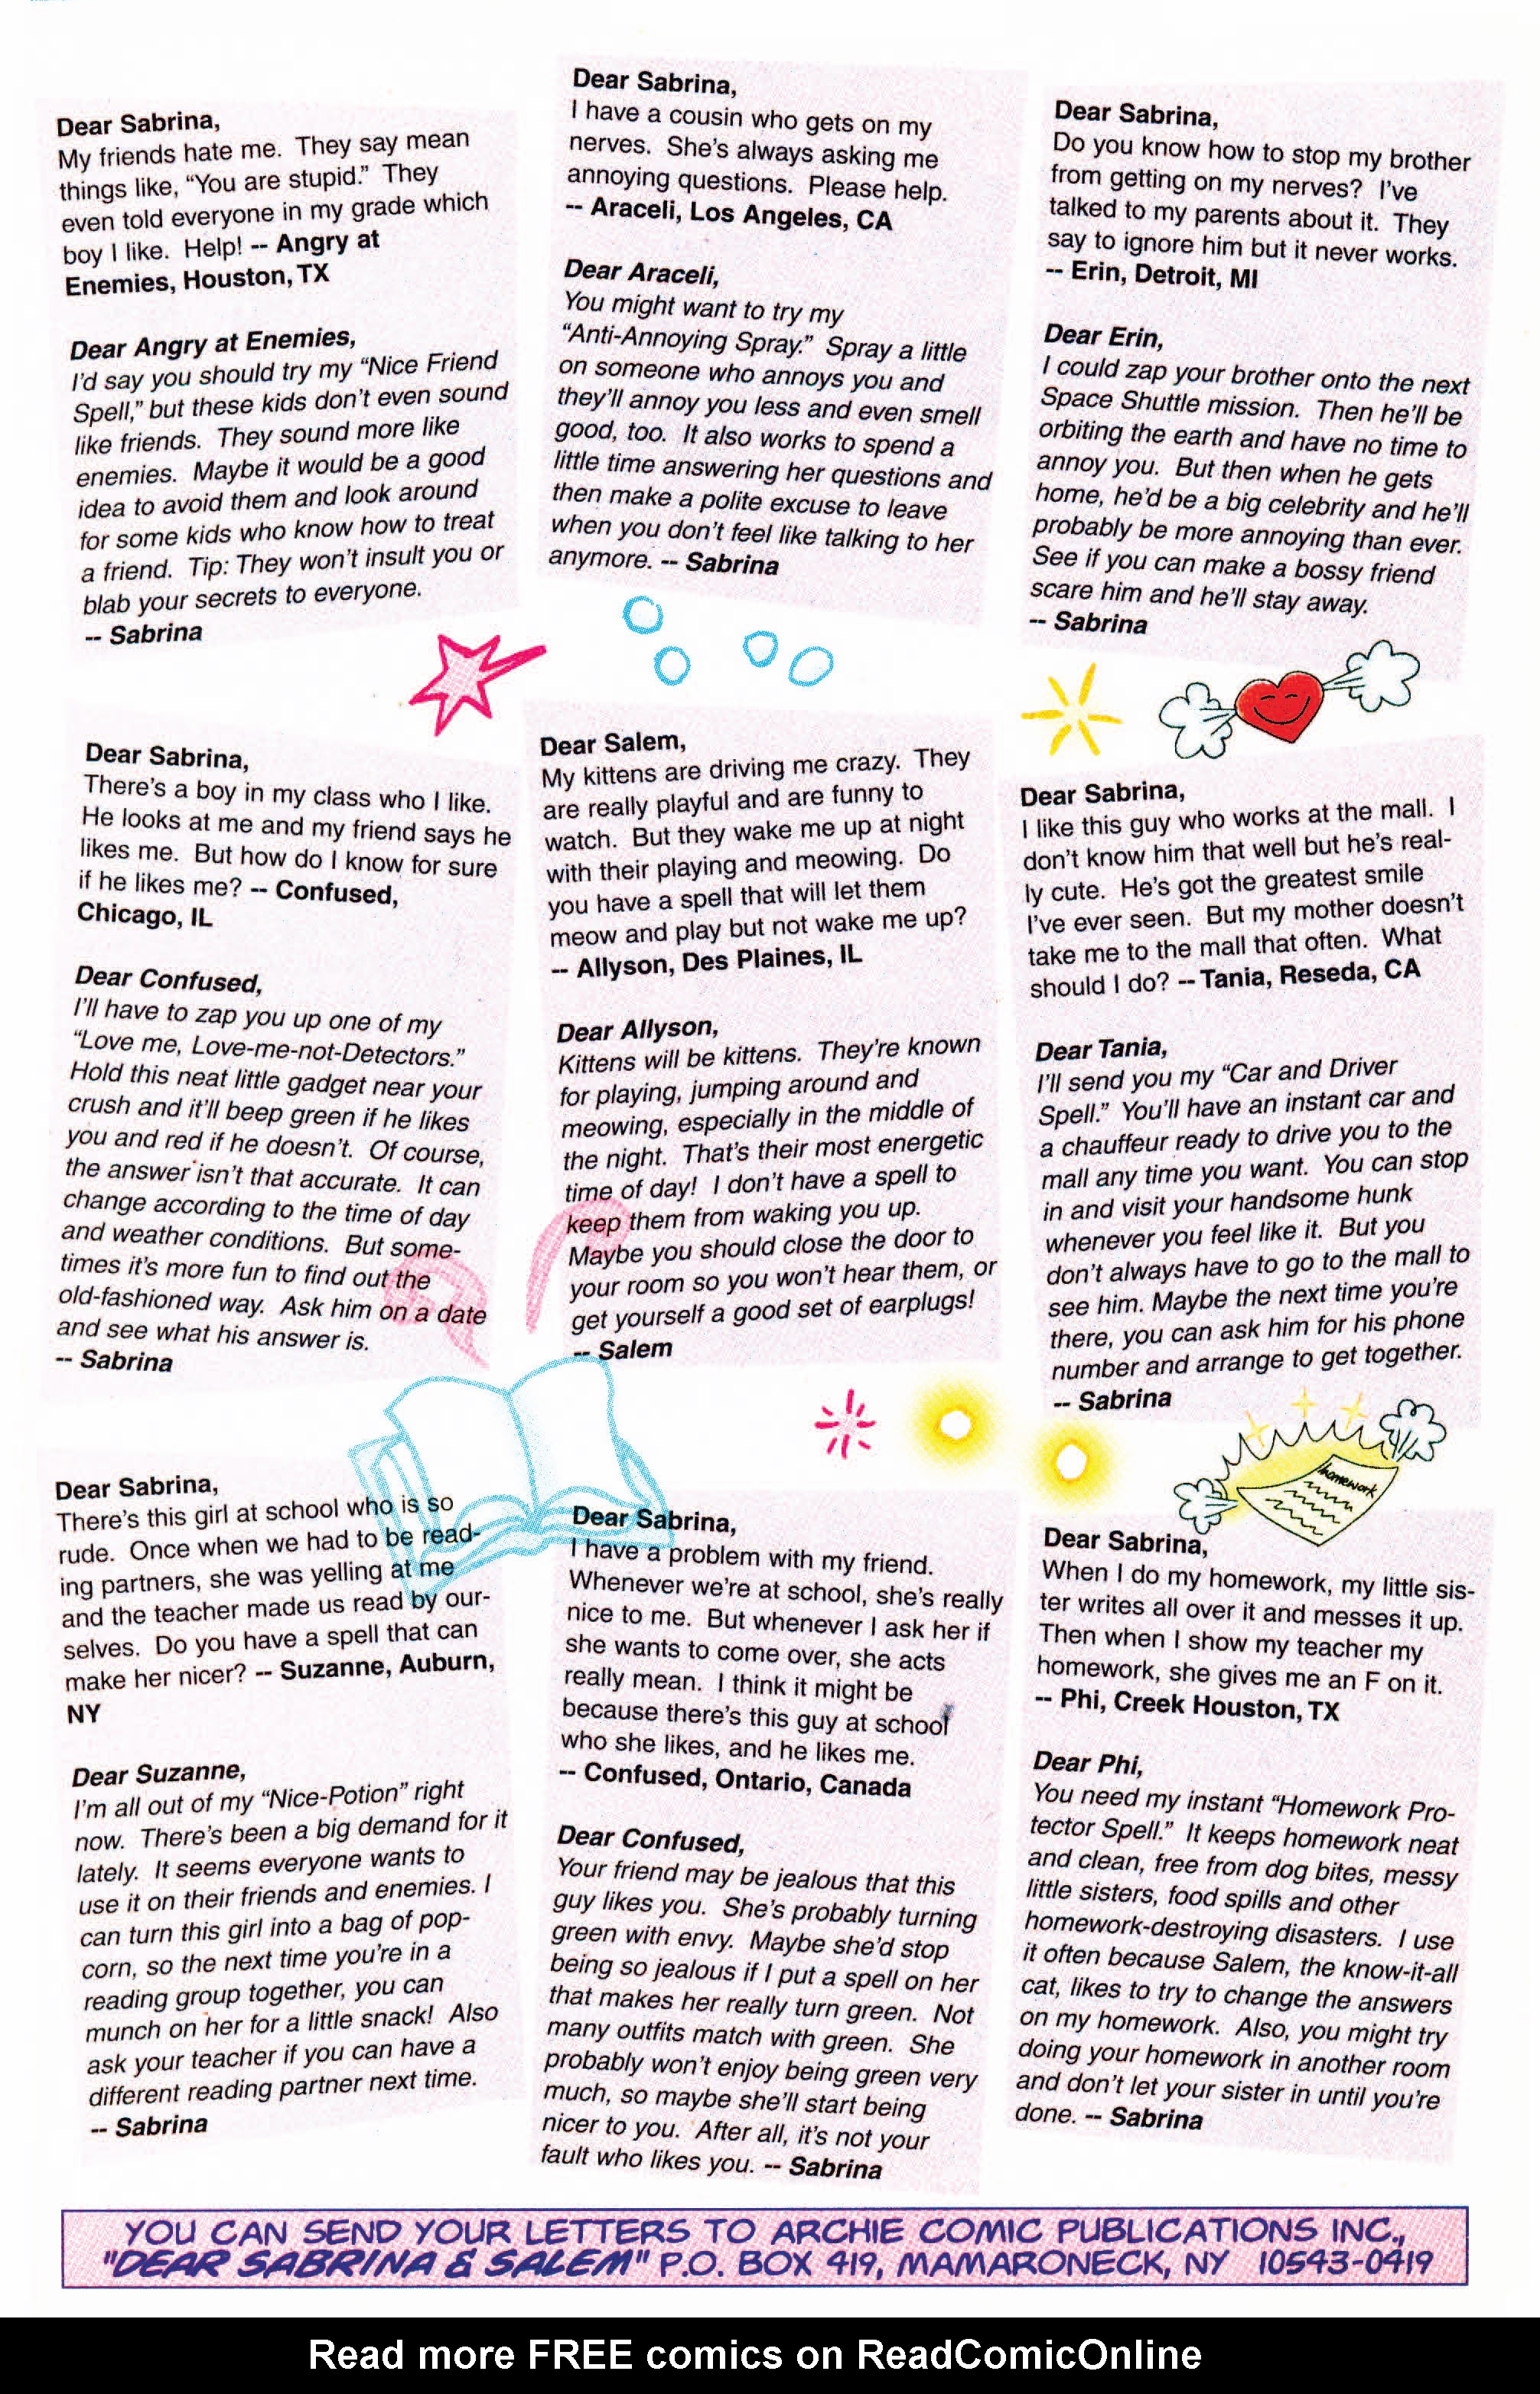 Dear Sabrina,
My friends hate me. They say mean
things like, “You are stupid.” They
even told everyone in my grade which
boy I like. Help! -- Angry at
Enemies, Houston, TX
Dear Angry at Enemies,
I’d say you should try my “Nice Friend
Spell,” but these kids don’t even sound
like friends. They sound more like
enemies. Maybe it would be a good
idea to avoid them and look around
for some kids who know how to treat
a friend. Tip: They won’t insult you or
blab your secrets to everyone.
-- Sabrina
Dear Sabrina,
I have a cousin who gets on my
nerves. She’s always asking me
annoying questions. Please help.
-- Araceli, Los Angeles, CA
Dear Araceli,
You might want to try my
“Anti-Annoying Spray.” Spray a little
on someone who annoys you and
they’ll annoy you less and even smell
good, too. It also works to spend a
little time answering her questions and
then make a polite excuse to leave
when you don’t feel like talking to her
anymore. -- Sabrina
Dear Sabrina,
Do you know how to stop my brother
from getting on my nerves? I’ve
talked to my parents about it. They
say to ignore him but it never works.
-- Erin, Detroit, MI
Dear Erin,
I could zap your brother onto the next
Space Shuttle mission. Then he’ll be
orbiting the earth and have no time to
annoy you. But then when he gets
home, he’d be a big celebrity and he’ll
probably be more annoying than ever.
See if you can make a bossy friend
scare him and he’ll stay away.
-- Sabrina
Dear Sabrina,
There’s a boy in my class who I like.
He looks at me and my friend says he
likes me. But how do I know for sure
if he likes me? -- Confused,
Chicago, IL
Dear Confused,
I’ll have to zap you up one of my
“Love me, Love-me-not-Detectors.”
Hold this neat little gadget near your
crush and it’ll beep green if he likes
you and red if he doesn’t. Of course,
the answer isn’t that accurate. It can
change according to the time of day
and weather conditions. But some-
times it’s more fun to find out the
old-fashioned way. Ask him on a date
and see what his answer is.
-- Sabrina
Dear Salem,
My kittens are driving me crazy. They
are really playful and are funny to
watch. But they wake me up at night
with their playing and meowing. Do
you have a spell that will let them
meow and play but not wake me up?
-- Allyson, Des Plaines, IL
Dear Allyson,
Kittens will be kittens. They’re known
for playing, jumping around and
meowing, especially in the middle of
the night. That’s their most energetic
time of day! I don’t have a spell to
keep them from waking you up.
Maybe you should close the door to
your room so you won’t hear them, or
get yourself a good set of earplugs!
-- Salem
Dear Sabrina,
I like this guy who works at the mall. I
don’t know him that well but he’s real-
ly cute. He’s got the greatest smile
I’ve ever seen. But my mother doesn’t
take me to the mall that often. What
should I do? -- Tania, Reseda, CA
Dear Tania,
I’ll send you my “Car and Driver
Spell.” You’ll have an instant car and
a chauffeur ready to drive you to the
mall any time you want. You can stop
in and visit your handsome hunk
whenever you feel like it. But you
don’t always have to go to the mall to
see him. Maybe the next time you’re
there, you can ask him for his phone
number and arrange to get together.
-- Sabrina
homework
Dear Sabrina,
There’s this girl at school who is so
rude. Once when we had to be read-
ing partners, she was yelling at me
and the teacher made us read by our-
selves. Do you have a spell that can
make her nicer? -- Suzanne, Auburn,
NY
Dear Suzanne,
I’m all out of my “Nice-Potion” right
now. There’s been a big demand for it
lately. It seems everyone wants to
use it on their friends and enemies. I
can turn this girl into a bag of pop-
corn, so the next time you’re in a
reading group together, you can
munch on her for a little snack! Also
ask your teacher if you can have a
different reading partner next time.
-- Sabrina
Dear Sabrina,
I have a problem with my friend.
Whenever we’re at school, she’s really
nice to me. But whenever I ask her if
she wants to come over, she acts
really mean. I think it might be
because there’s this guy at school
who she likes, and he likes me.
-- Confused, Ontario, Canada
Dear Confused,
Your friend may be jealous that this
guy likes you. She’s probably turning
green with envy. Maybe she’d stop
being so jealous if I put a spell on her
that makes her really turn green. Not
many outfits match with green. She
probably won’t enjoy being green very
much, so maybe she’ll start being
nicer to you. After all, it’s not your
fault who likes you. -- Sabrina
Dear Sabrina,
When I do my homework, my little sis-
ter writes all over it and messes it up.
Then when I show my teacher my
homework, she gives me an F on it.
-- Phi, Creek Houston, TX
Dear Phi,
You need my instant “Homework Pro-
tector Spell.” It keeps homework neat
and clean, free from dog bites, messy
little sisters, food spills and other
homework-destroying disasters. I use
it often because Salem, the know-it-all
cat, likes to try to change the answers
on my homework. Also, you might try
doing your homework in another room
and don’t let your sister in until you’re
done. -- Sabrina
YOU CAN SEND YOUR LETTERS TO ARCHIE COMIC PUBLICATIONS INC.,
"DEAR SABRINA & SALEM" P.O. BOX 419, MAMARONECK, NY 10543-0419
Read more FREE comics on ReadComicOnline